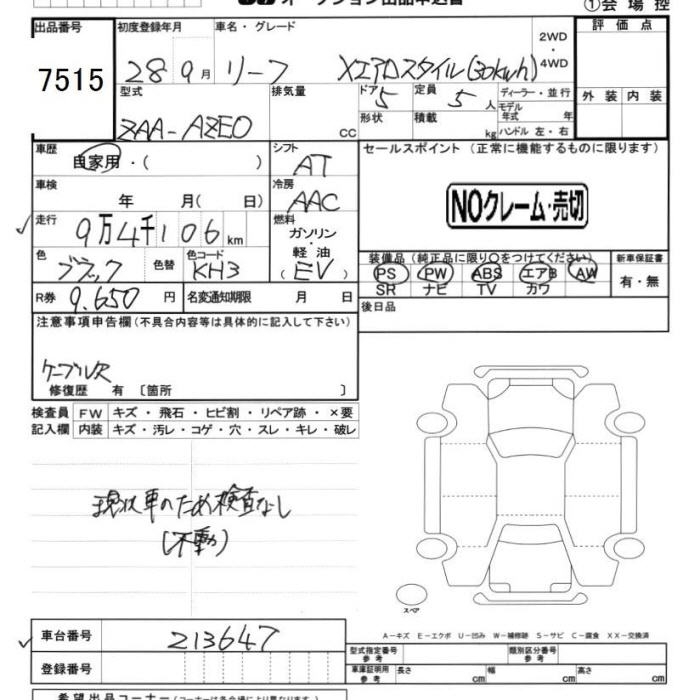 オークション出品申込書
①会場控
出品番号 初度登録年月 車名・グレード 2WD 4WD 評価点
7515 28 9月 リーフ Xエアロスタイル(30kwh)
型式 排気量 ドア 5 定員 5人 ディーラー・並行 外装 内装
ZAA-AZE0 cc 形状 積載 kg モデル年式 年 ハンドル 左・右
車歴 自家用・( ) シフト AT セールスポイント (正常に機能するものに限ります)
車検 年 月(日) 冷房 AAC
NOクレーム・売切
走行 9万4千106km 燃料 ガソリン・軽油 (EV)
色 ブラック 色替 色コード KH3
装備品(純正品に限り○をつけてください) 新車保証書
PS PW ABS エアB AW 有・無
SR ナビ TV カワ
R券 9.650円 名変通知期限 月 日 後日品
注意事項申告欄(不具合内容等は具体的に記入して下さい)
ケーブルR
修復歴 有 〔箇所 〕
検査員 FW キズ・飛石・ヒビ割・リペア跡・×要
記入欄 内装 キズ・汚レ・コゲ・穴・スレ・キレ・破レ
現状車のため検査なし
(不動)
スペア
A-キズ E-エクボ U-凹み W-補修跡 S-サビ C-腐食 XX-交換済
車台番号 213647
型式指定番号 参考 類別区分番号 参考
登録番号 車庫証明用 参考 長さ cm 幅 cm 高さ cm
希望出品コーナー(コーナーは各会場により異なります)